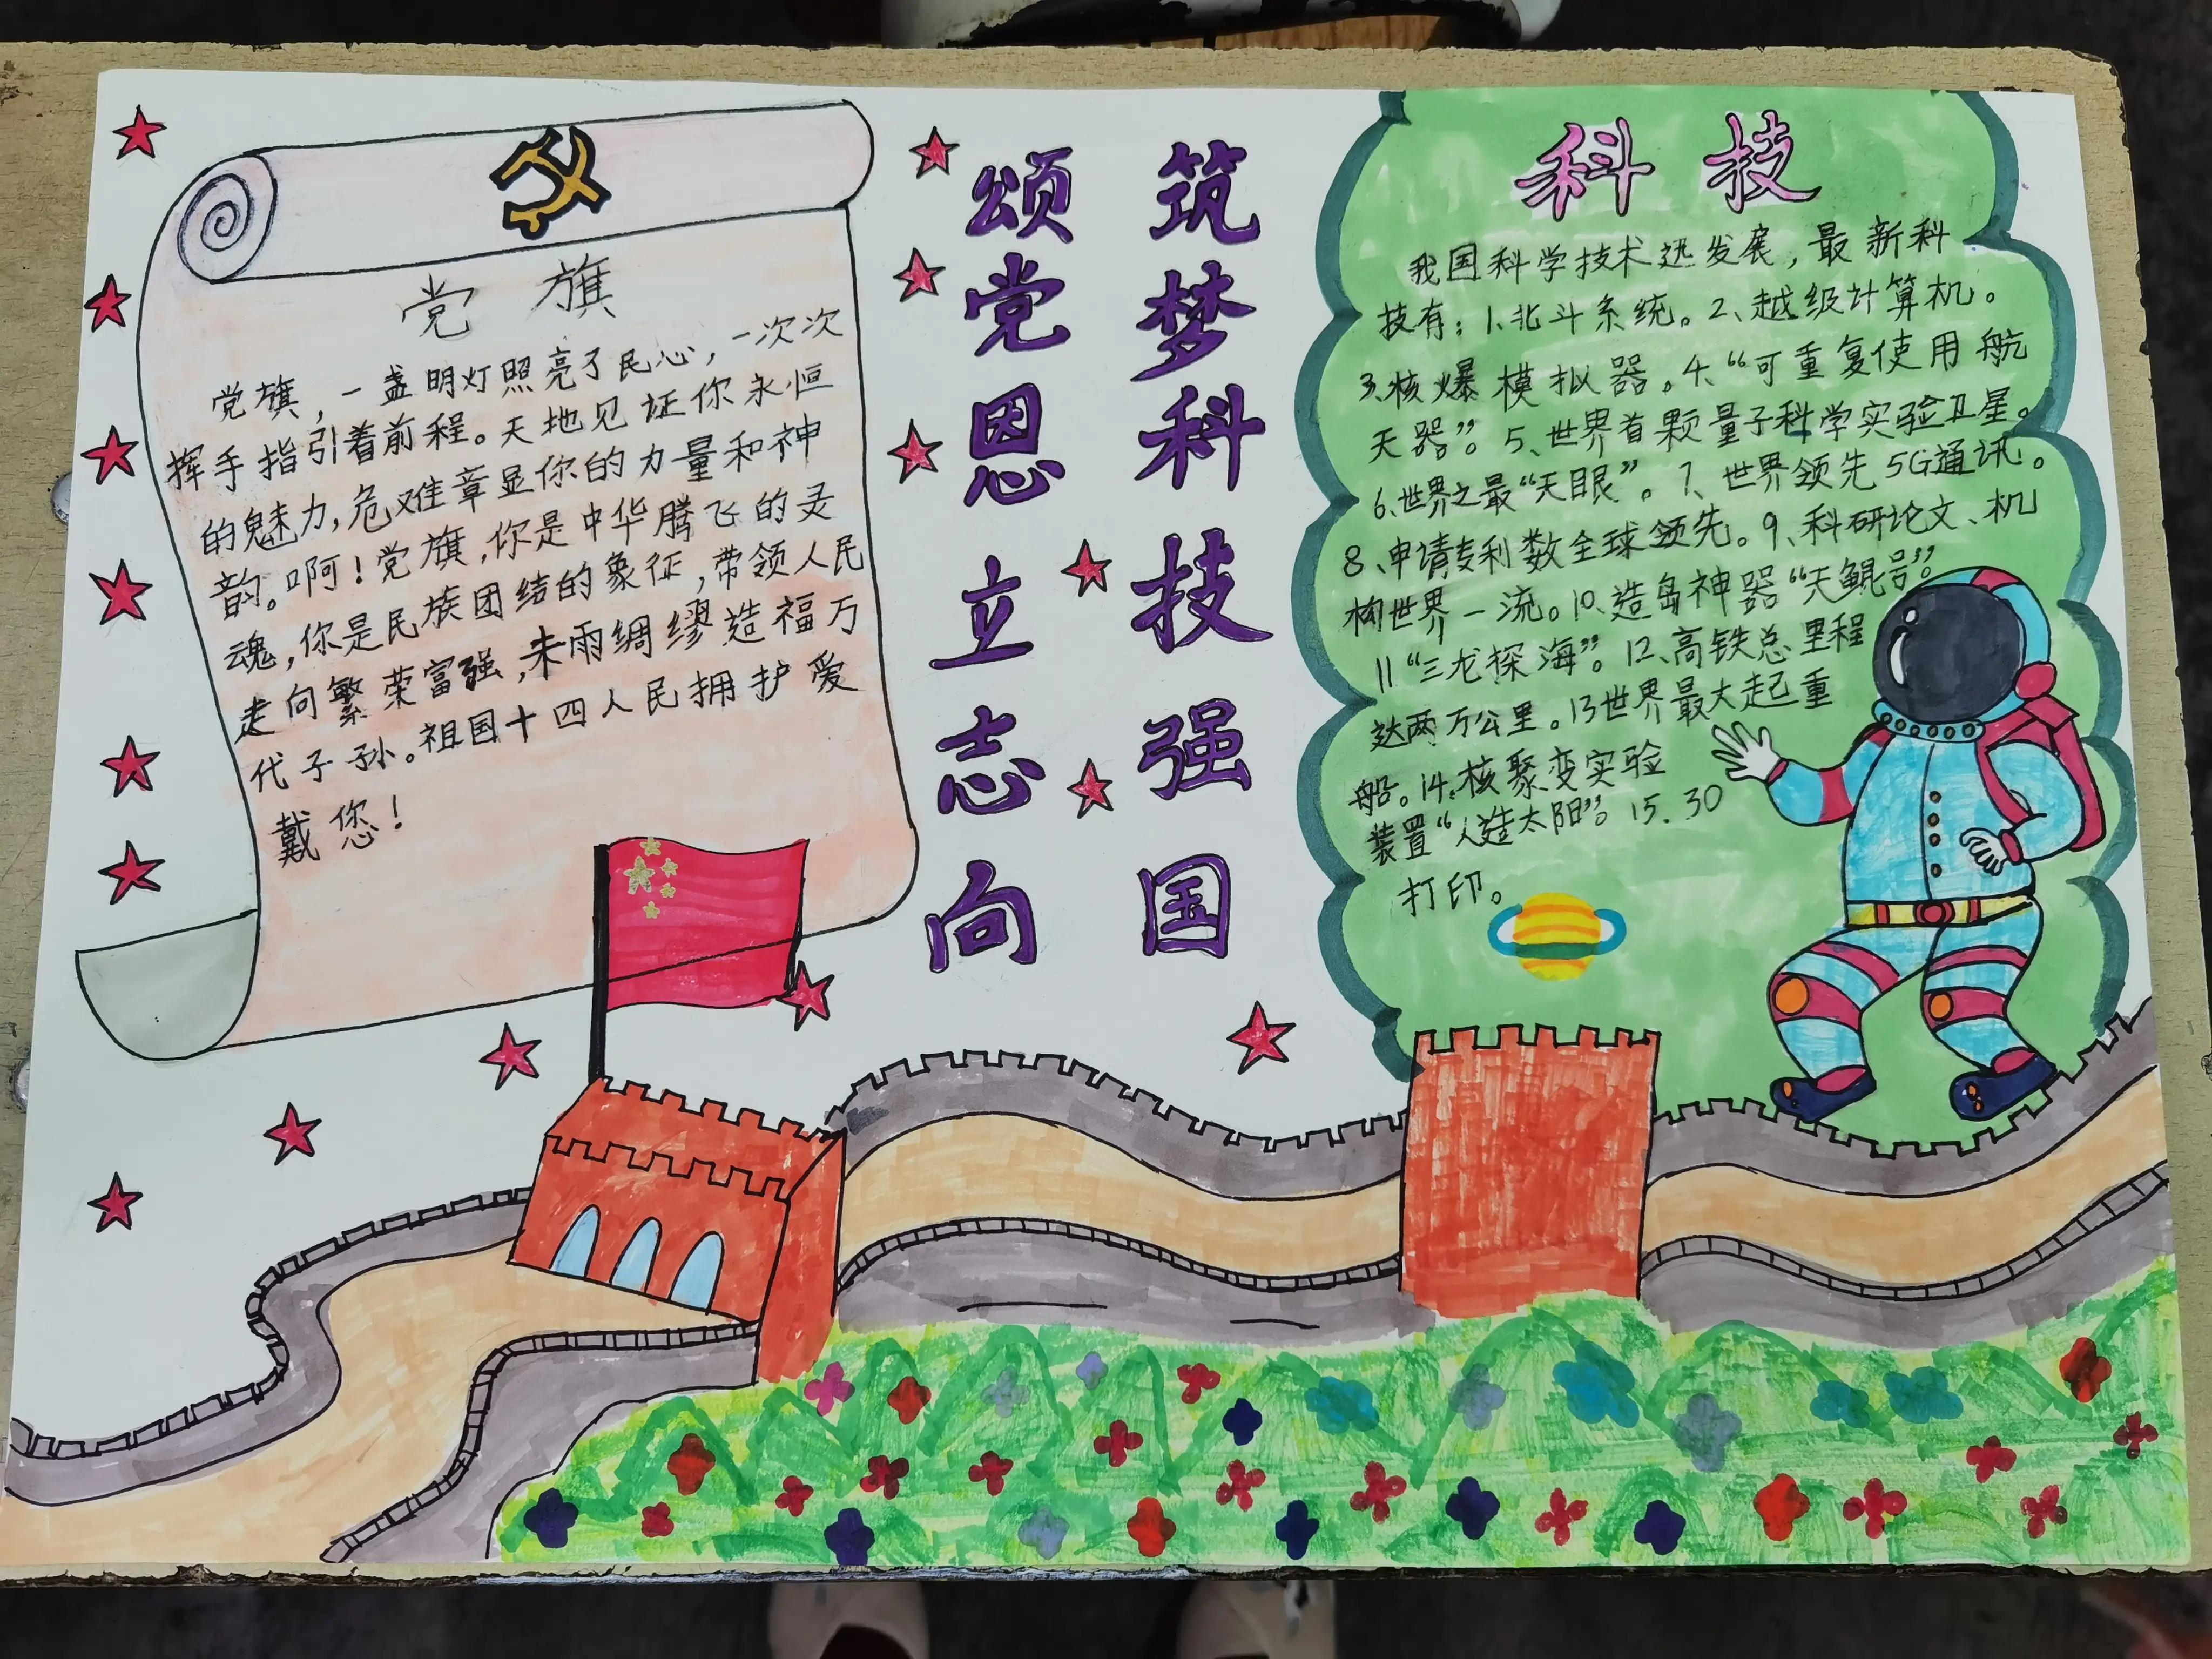 党旗
党旗，一盏明灯照亮了民心，一次次
挥手指引着前程。天地见证你永恒
的魅力，危难章显你的力量和神
韵。啊！党旗，你是中华腾飞的灵
魂，你是民族团结的象征，带领人民
走向繁荣富强，未雨绸缪造福万
代子孙。祖国十四人民拥护爱
戴您！
颂党恩立志向
筑梦科技强国
科技
我国科学技术迅发展，最新科
技有：1、北斗系统。2、越级计算机。
3、核爆模拟器。4、“可重复使用航
天器”。5、世界首颗量子科学实验卫星。
6、世界之最“天眼”。7、世界领先5G通讯。
8、申请专利数全球领先。9、科研论文、机
构世界一流。10、造岛神器“天鲲号”。
11“三龙探海”。12、高铁总里程
达两万公里。13世界最大起重
船。14、核聚变实验
装置“人造太阳”。15.30
打印。